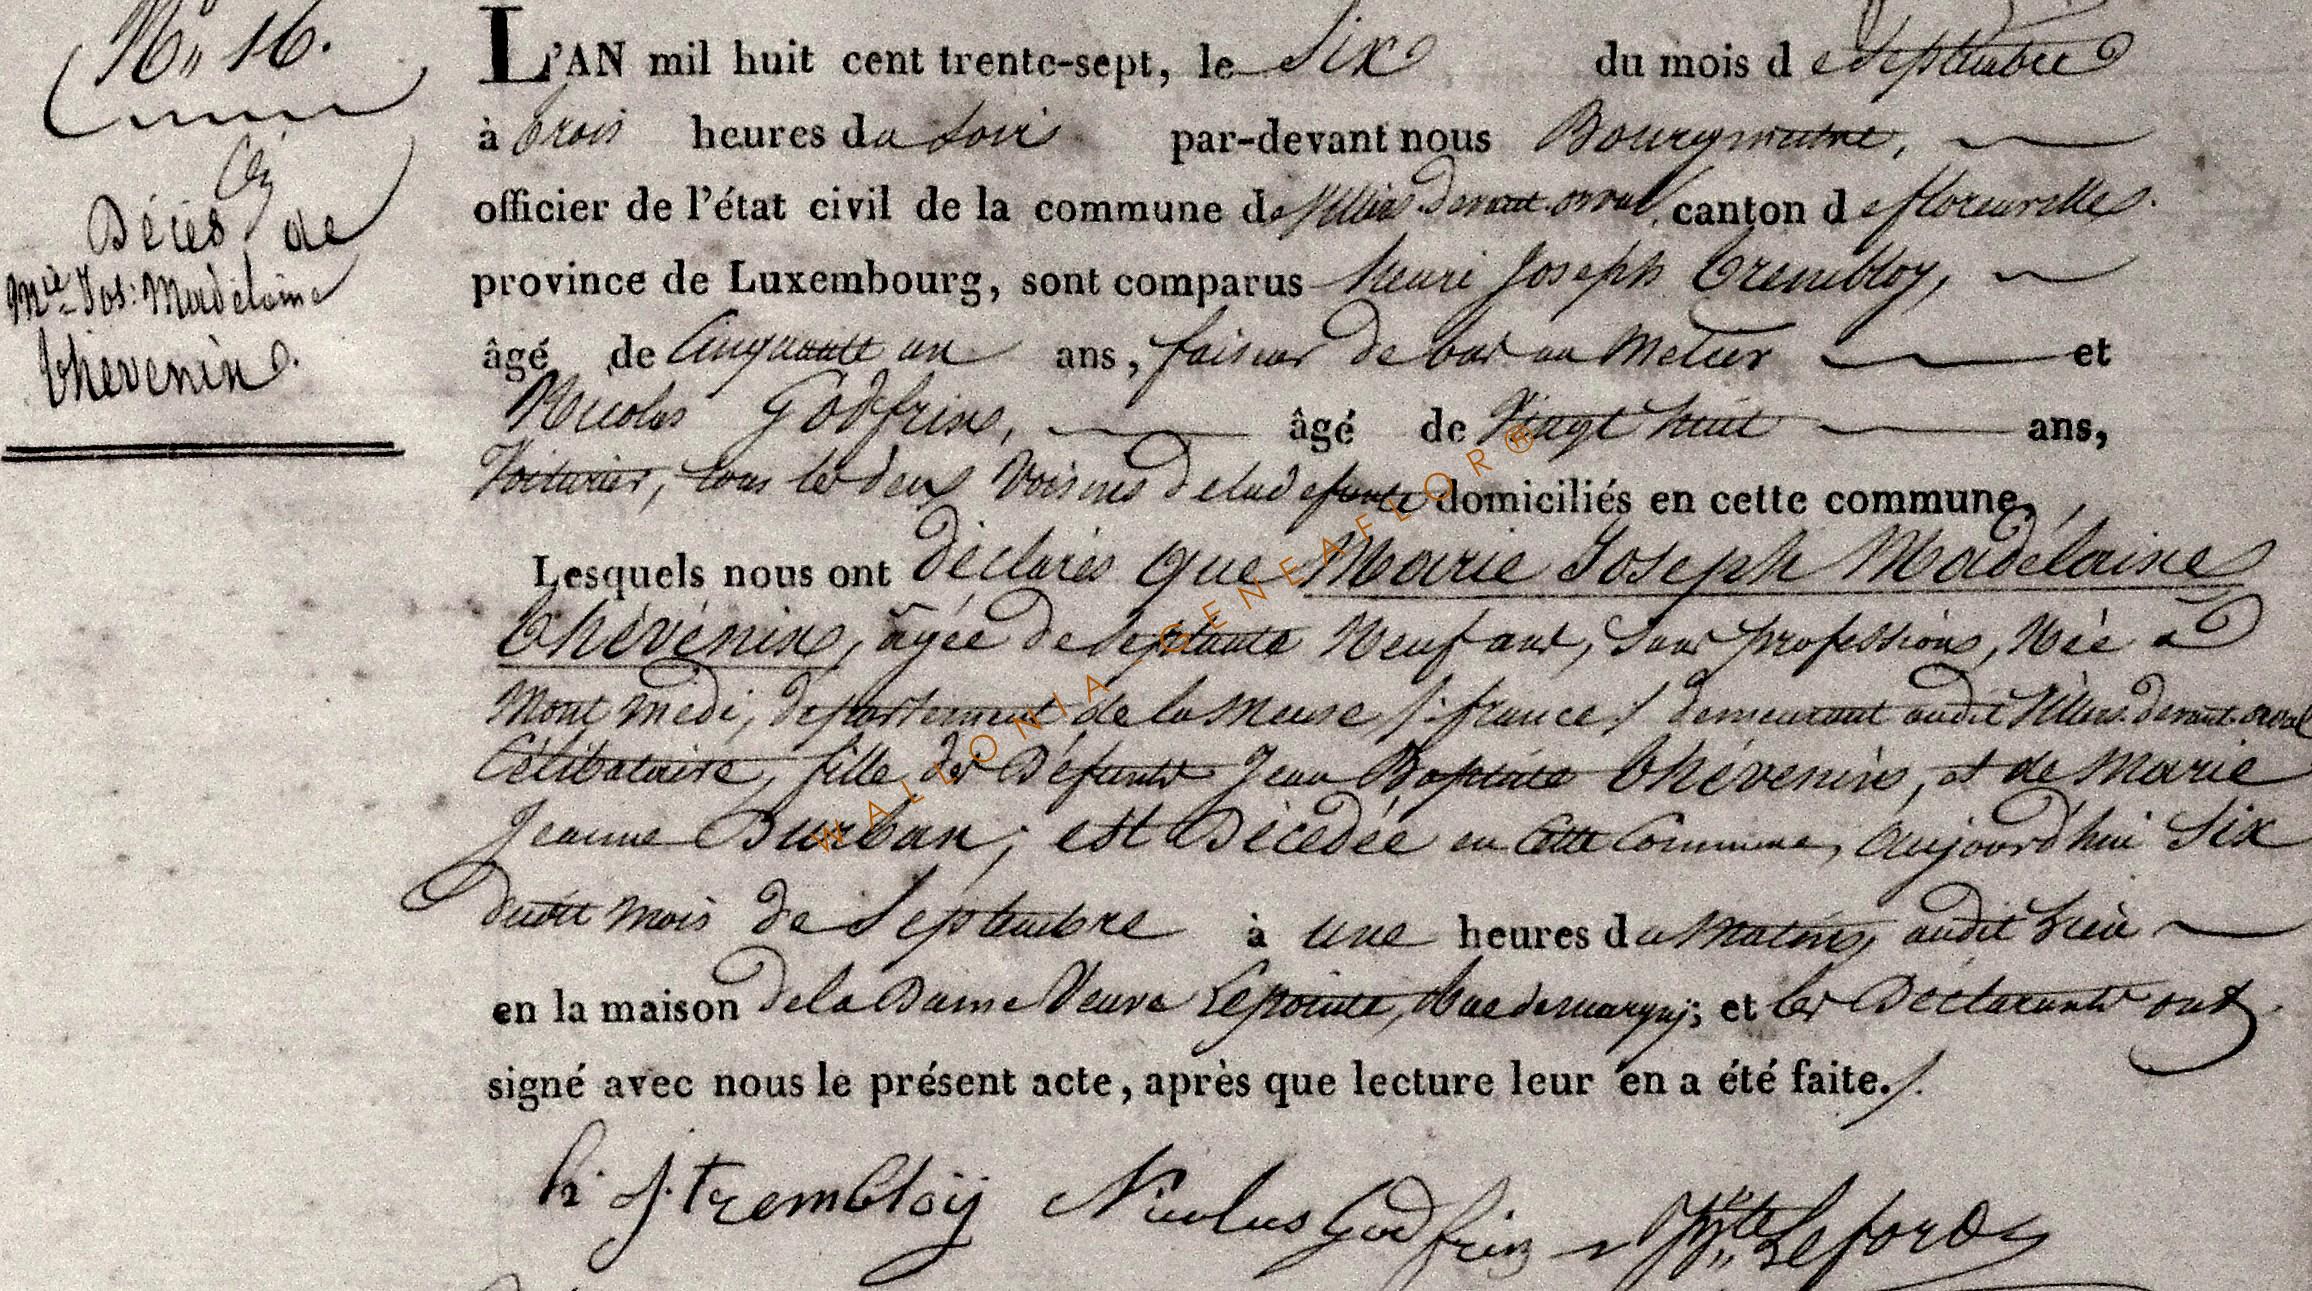 N° 16.
Décès de
Mie Jos: Madelaine
Thévenin.
L'AN mil huit cent trente-sept, le Six du mois de Septembre
à trois heures du soir par-devant nous Bourgmestre,
officier de l'état civil de la commune de Villers devant orval, canton de florenville.
province de Luxembourg, sont comparus henri Joseph Trembloy,
âgé de Cinquante un ans, faiseur de bas au Métier et
Nicolas Godfrin, âgé de Vingt huit ans,
Voiturier, tous les deux Voisins de la defunte domiciliés en cette commune,
Lesquels nous ont déclarés que Marie Joseph Madélaine
Thévénin, âgée de Septante Neuf ans, Sans profession, Née à
Mont médi, département de la Meuse /: france :/ demeurant audit Villers-devant-orval
Célibataire, fille des Défunts Jean Baptiste Thévenin, et de Marie
Jeanne Burban; est Décédée en Cette Commune, aujourd'hui Six
dudit mois de Septembre à une heures du Matin, audit Lieu
en la maison de la Dame Veuve Lepointe, Rue de margny; et les Déclarants ont
signé avec nous le présent acte, après que lecture leur en a été faite./.
h. J. Trembloij Nicolas Godfrin Leford
WALLONIA-GENEAFLOR®